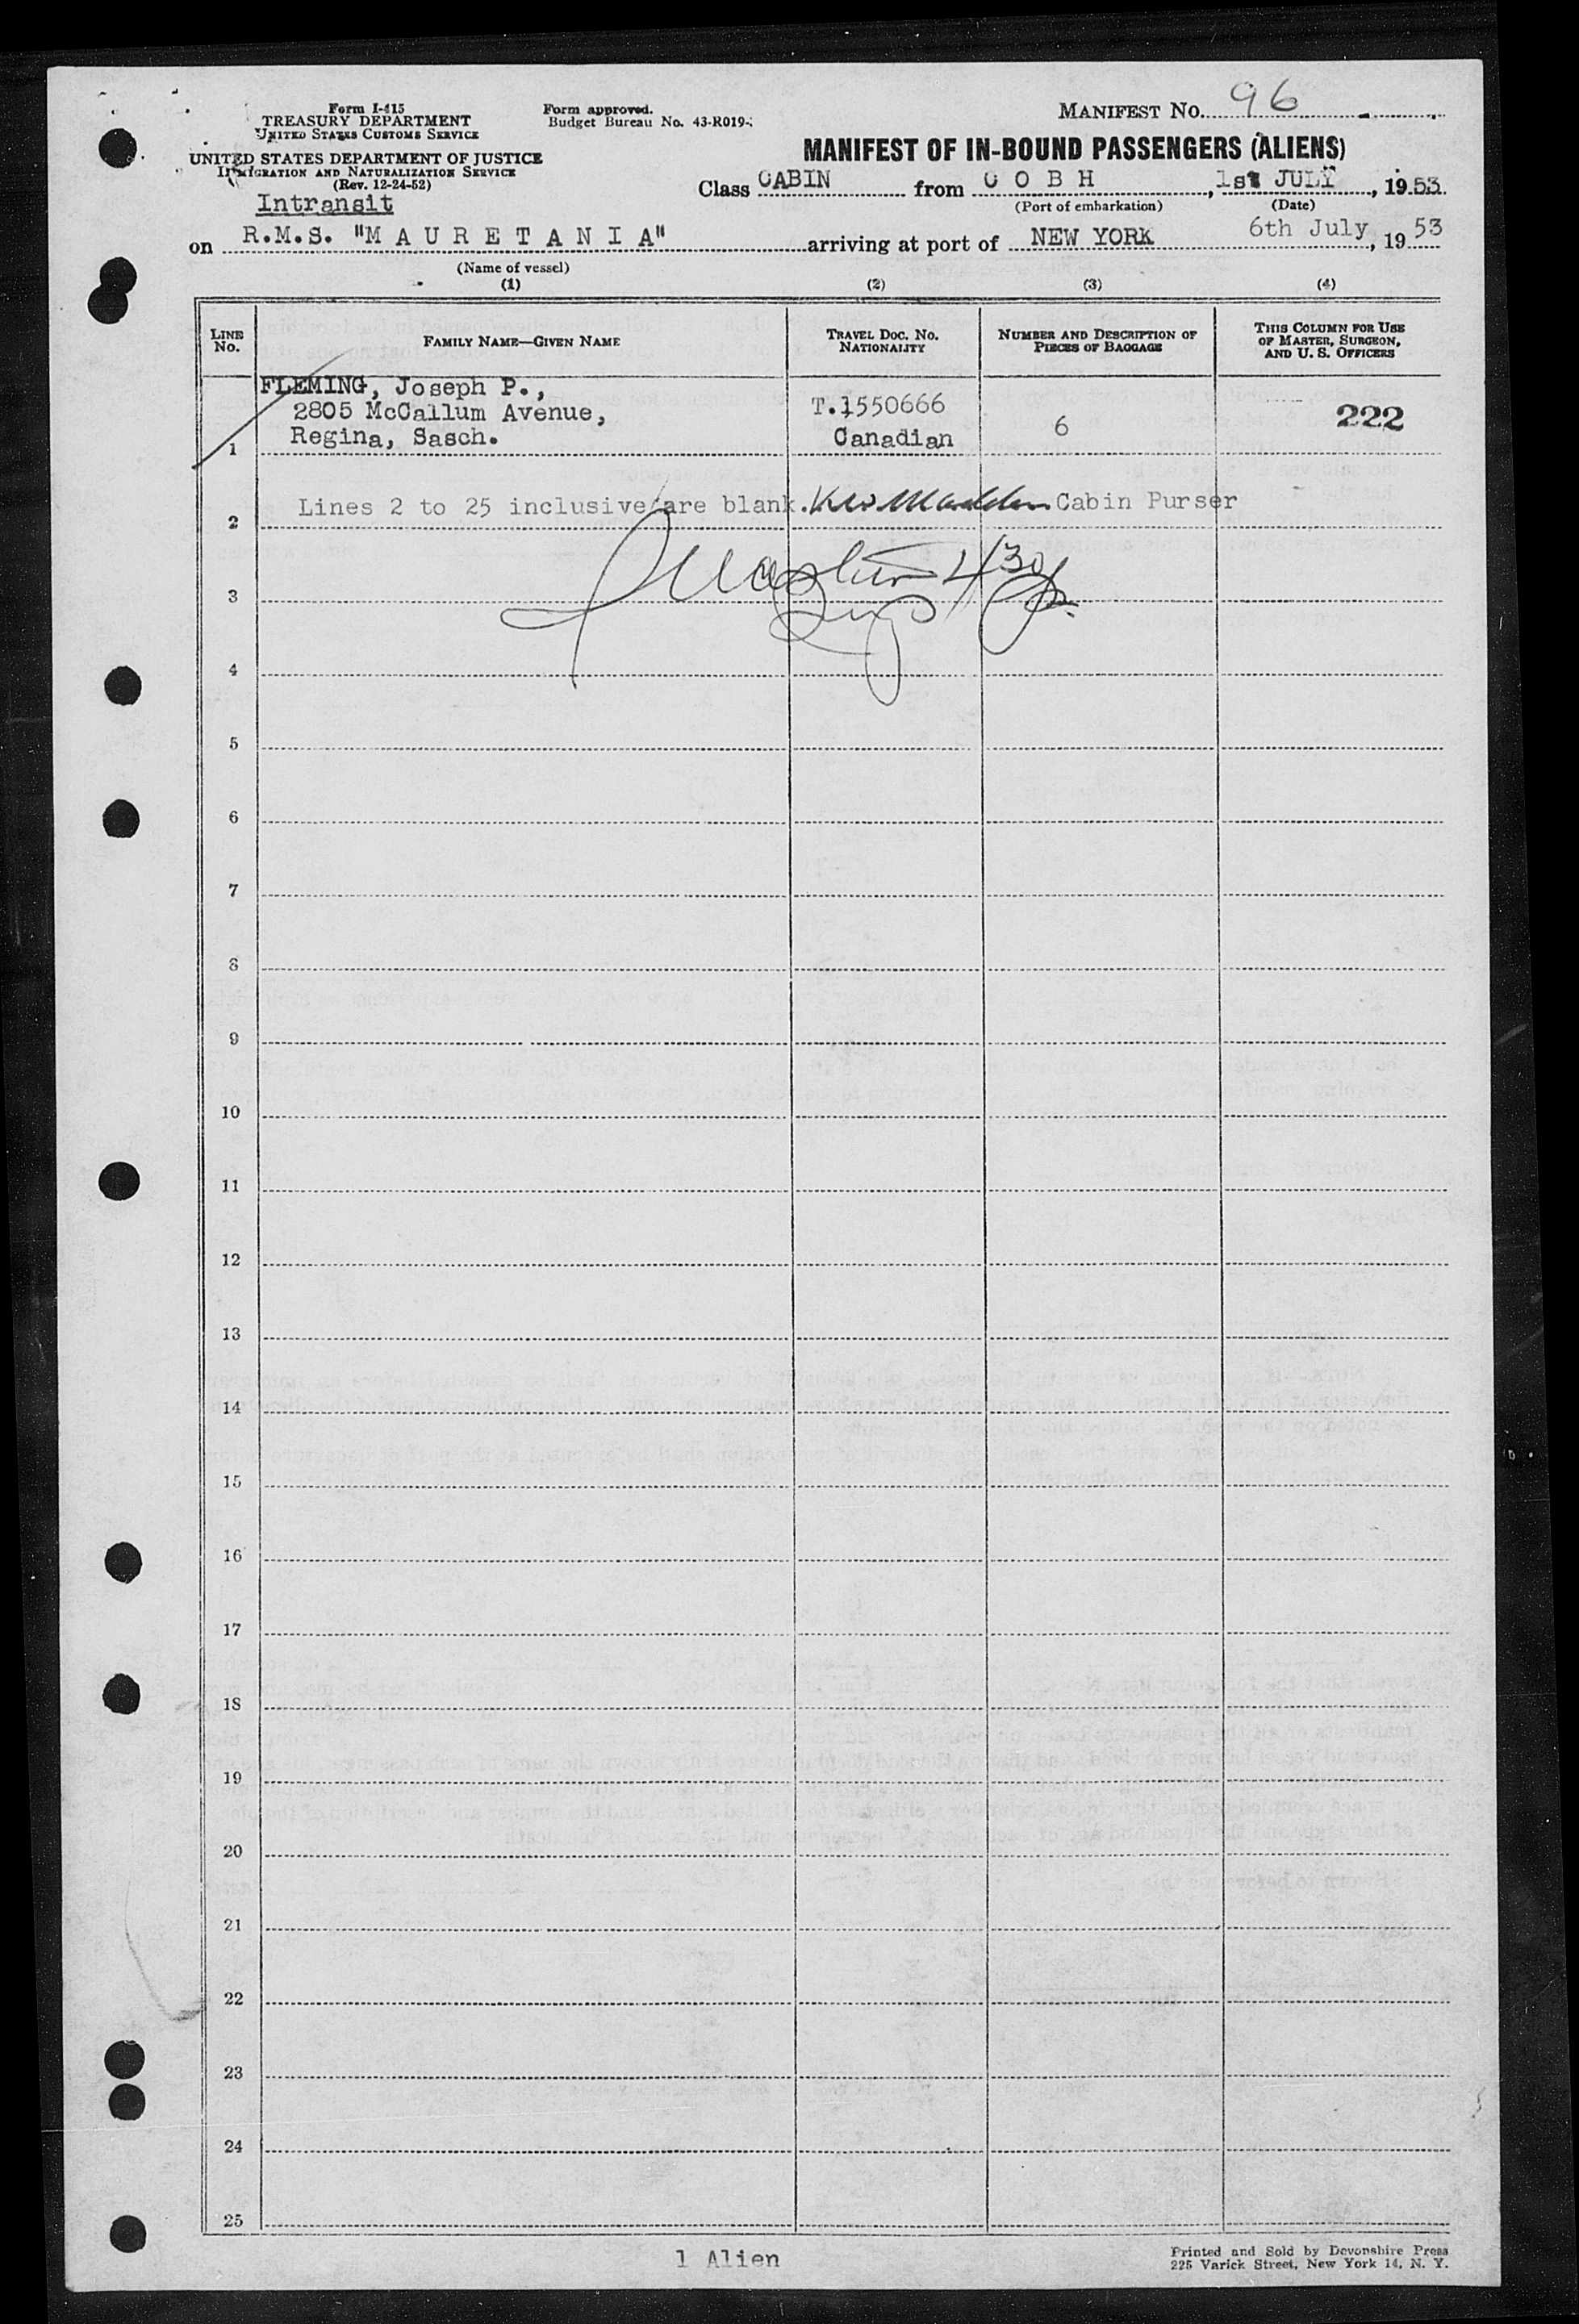 Form I-415
TREASURY DEPARTMENT
UNITED STATES CUSTOMS SERVICE
UNITED STATES DEPARTMENT OF JUSTICE
IMMIGRATION AND NATURALIZATION SERVICE
(Rev. 12-24-52)
Intransit
Form approved.
Budget Bureau No. 43-R019-
MANIFEST NO. 96
MANIFEST OF IN-BOUND PASSENGERS (ALIENS)
Class CABIN from COBH, 1st JULY, 1953
(Port of embarkation) (Date)
on R.M.S. "MAURETANIA" arriving at port of NEW YORK 6th July, 1953
(Name of vessel)
(1) (2) (3) (4)
LINE No. FAMILY NAME—GIVEN NAME TRAVEL DOC. NO. NATIONALITY NUMBER AND DESCRIPTION OF PIECES OF BAGGAGE THIS COLUMN FOR USE OF MASTER, SURGEON, AND U. S. OFFICERS
FLEMING, Joseph P.,
2805 McCallum Avenue, T.1550666 222
Regina, Sasch. Canadian 6
1
Lines 2 to 25 inclusive are blank. Cabin Purser
2
3
4
5
6
7
8
9
10
11
12
13
14
15
16
17
18
19
20
21
22
23
24
25
1 Alien
Printed and Sold by Devonshire Press
225 Varick Street, New York 14, N. Y.